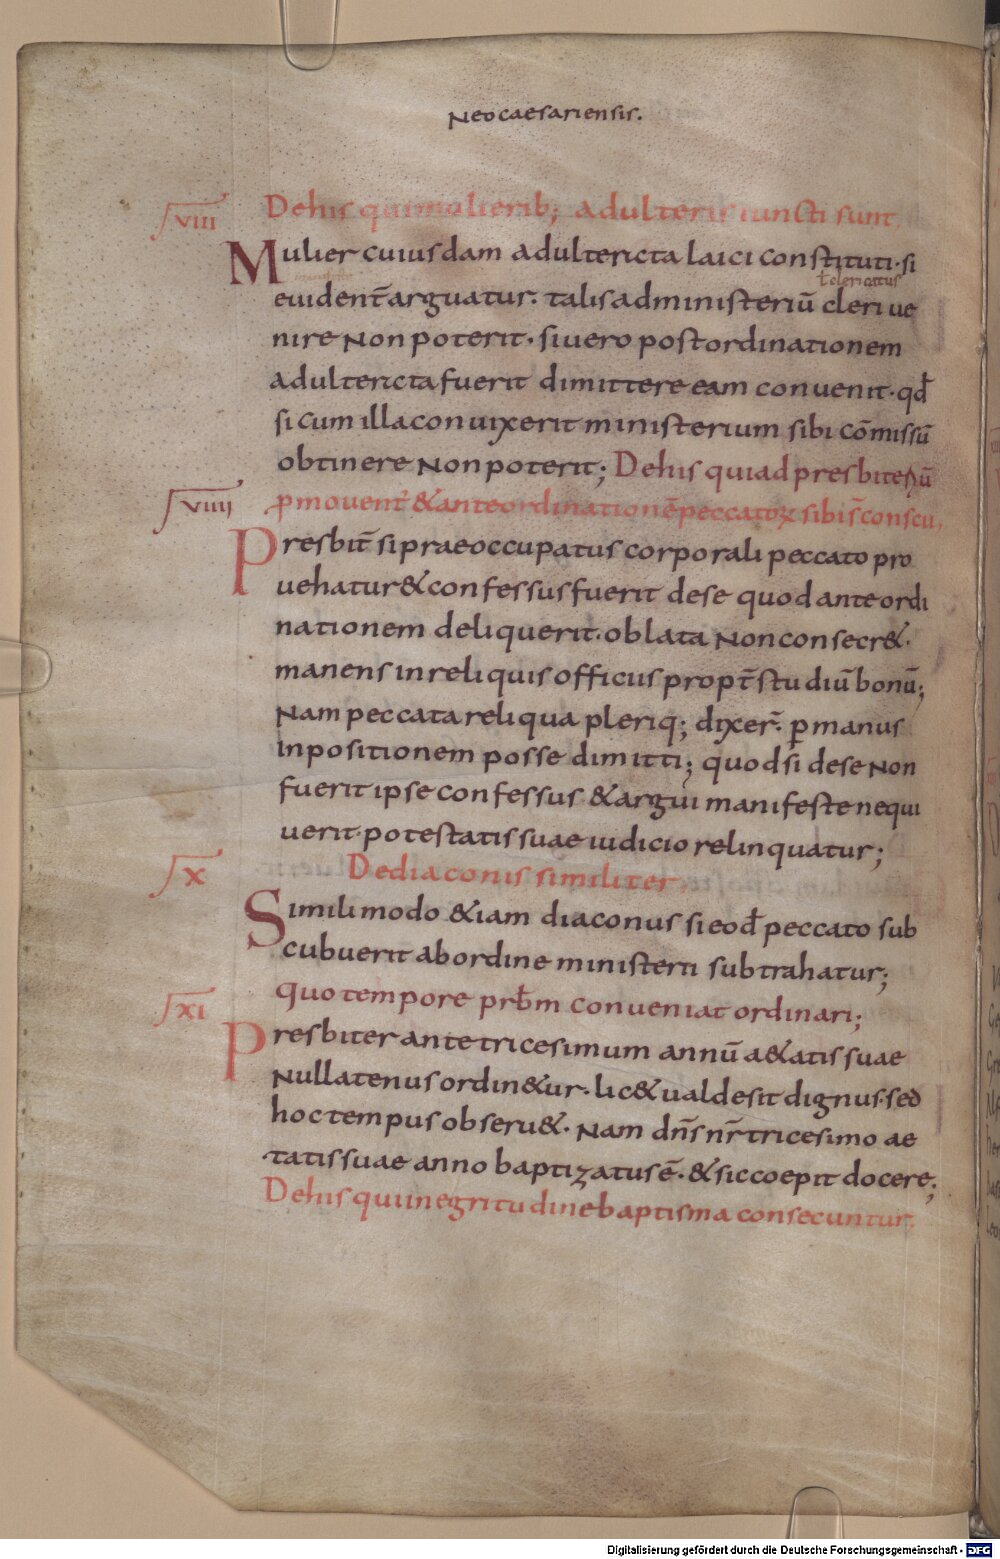 Neocaesariensis.
VIII Dehis qui mulierib; adulteris iuncti sunt.
Mulier cuiusdam adultericta laici constituti·si
t clericatus
euidenter arguatur· talis ad ministeriū cleri ue
nire Non poterit· siuero post ordinationem
adultericta fuerit dimittere eam conuenit·qđ
si cum illa conuixerit ministerium sibi cōmissū
obtinere Non poterit; Dehis qui ad presbiterū
VIIII ꝓmouent̄ & ante ordinationē peccatoꝝ sibi s̄ conscii,
Presbit̄ si praeoccupatus corporali peccato pro
uehatur & confessus fuerit dese quod ante ordi
nationem deliquerit·oblata Non consecr&·
manens in reliquis officiis propt̄ studiū bonū;
Nam peccata reliqua pleriq; dixer̄· ꝑ manus
inpositionem posse dimitti; quod si dese Non
fuerit ipse confessus & argui manifeste nequi
uerit·potestatis suae iudicio relinquatur;
X De diaconis similiter
Simili modo &iam diaconus si eođ peccato sub
cubuerit ab ordine ministerii subtrahatur;
quo tempore prb̄m conueniat ordinari;
XI Presbiter ante tricesimum annū a&atis suae
Nullatenus ordin&ur· lic& ualde sit dignus·sed
hoc tempus obseru&· Nam dn̄s nr̄ tricesimo ae
tatis suae anno baptizatus ē·& sic coepit docere;
Dehis qui inegritudine baptisma consecuntur.
Digitalisierung gefördert durch die Deutsche Forschungsgemeinschaft - DFG